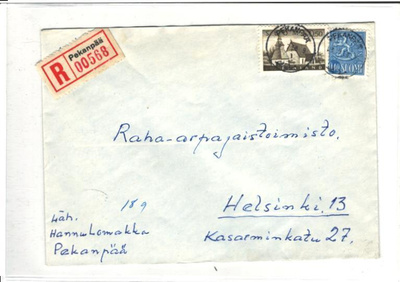 Pekanpää
R 00568
SUOMI
Raha-arpajaistoimisto.
Helsinki. 13
Kasarminkatu 27.
189
Läh.
Pekanpää